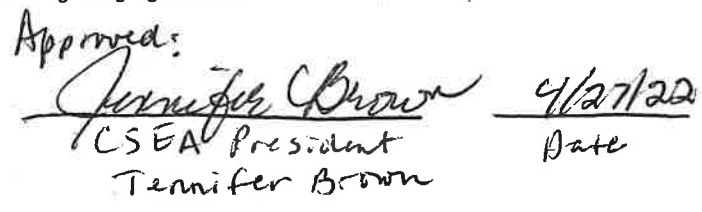 Approved:
Jennifer Brown 4/27/22
CSEA President Date
Jennifer Brown